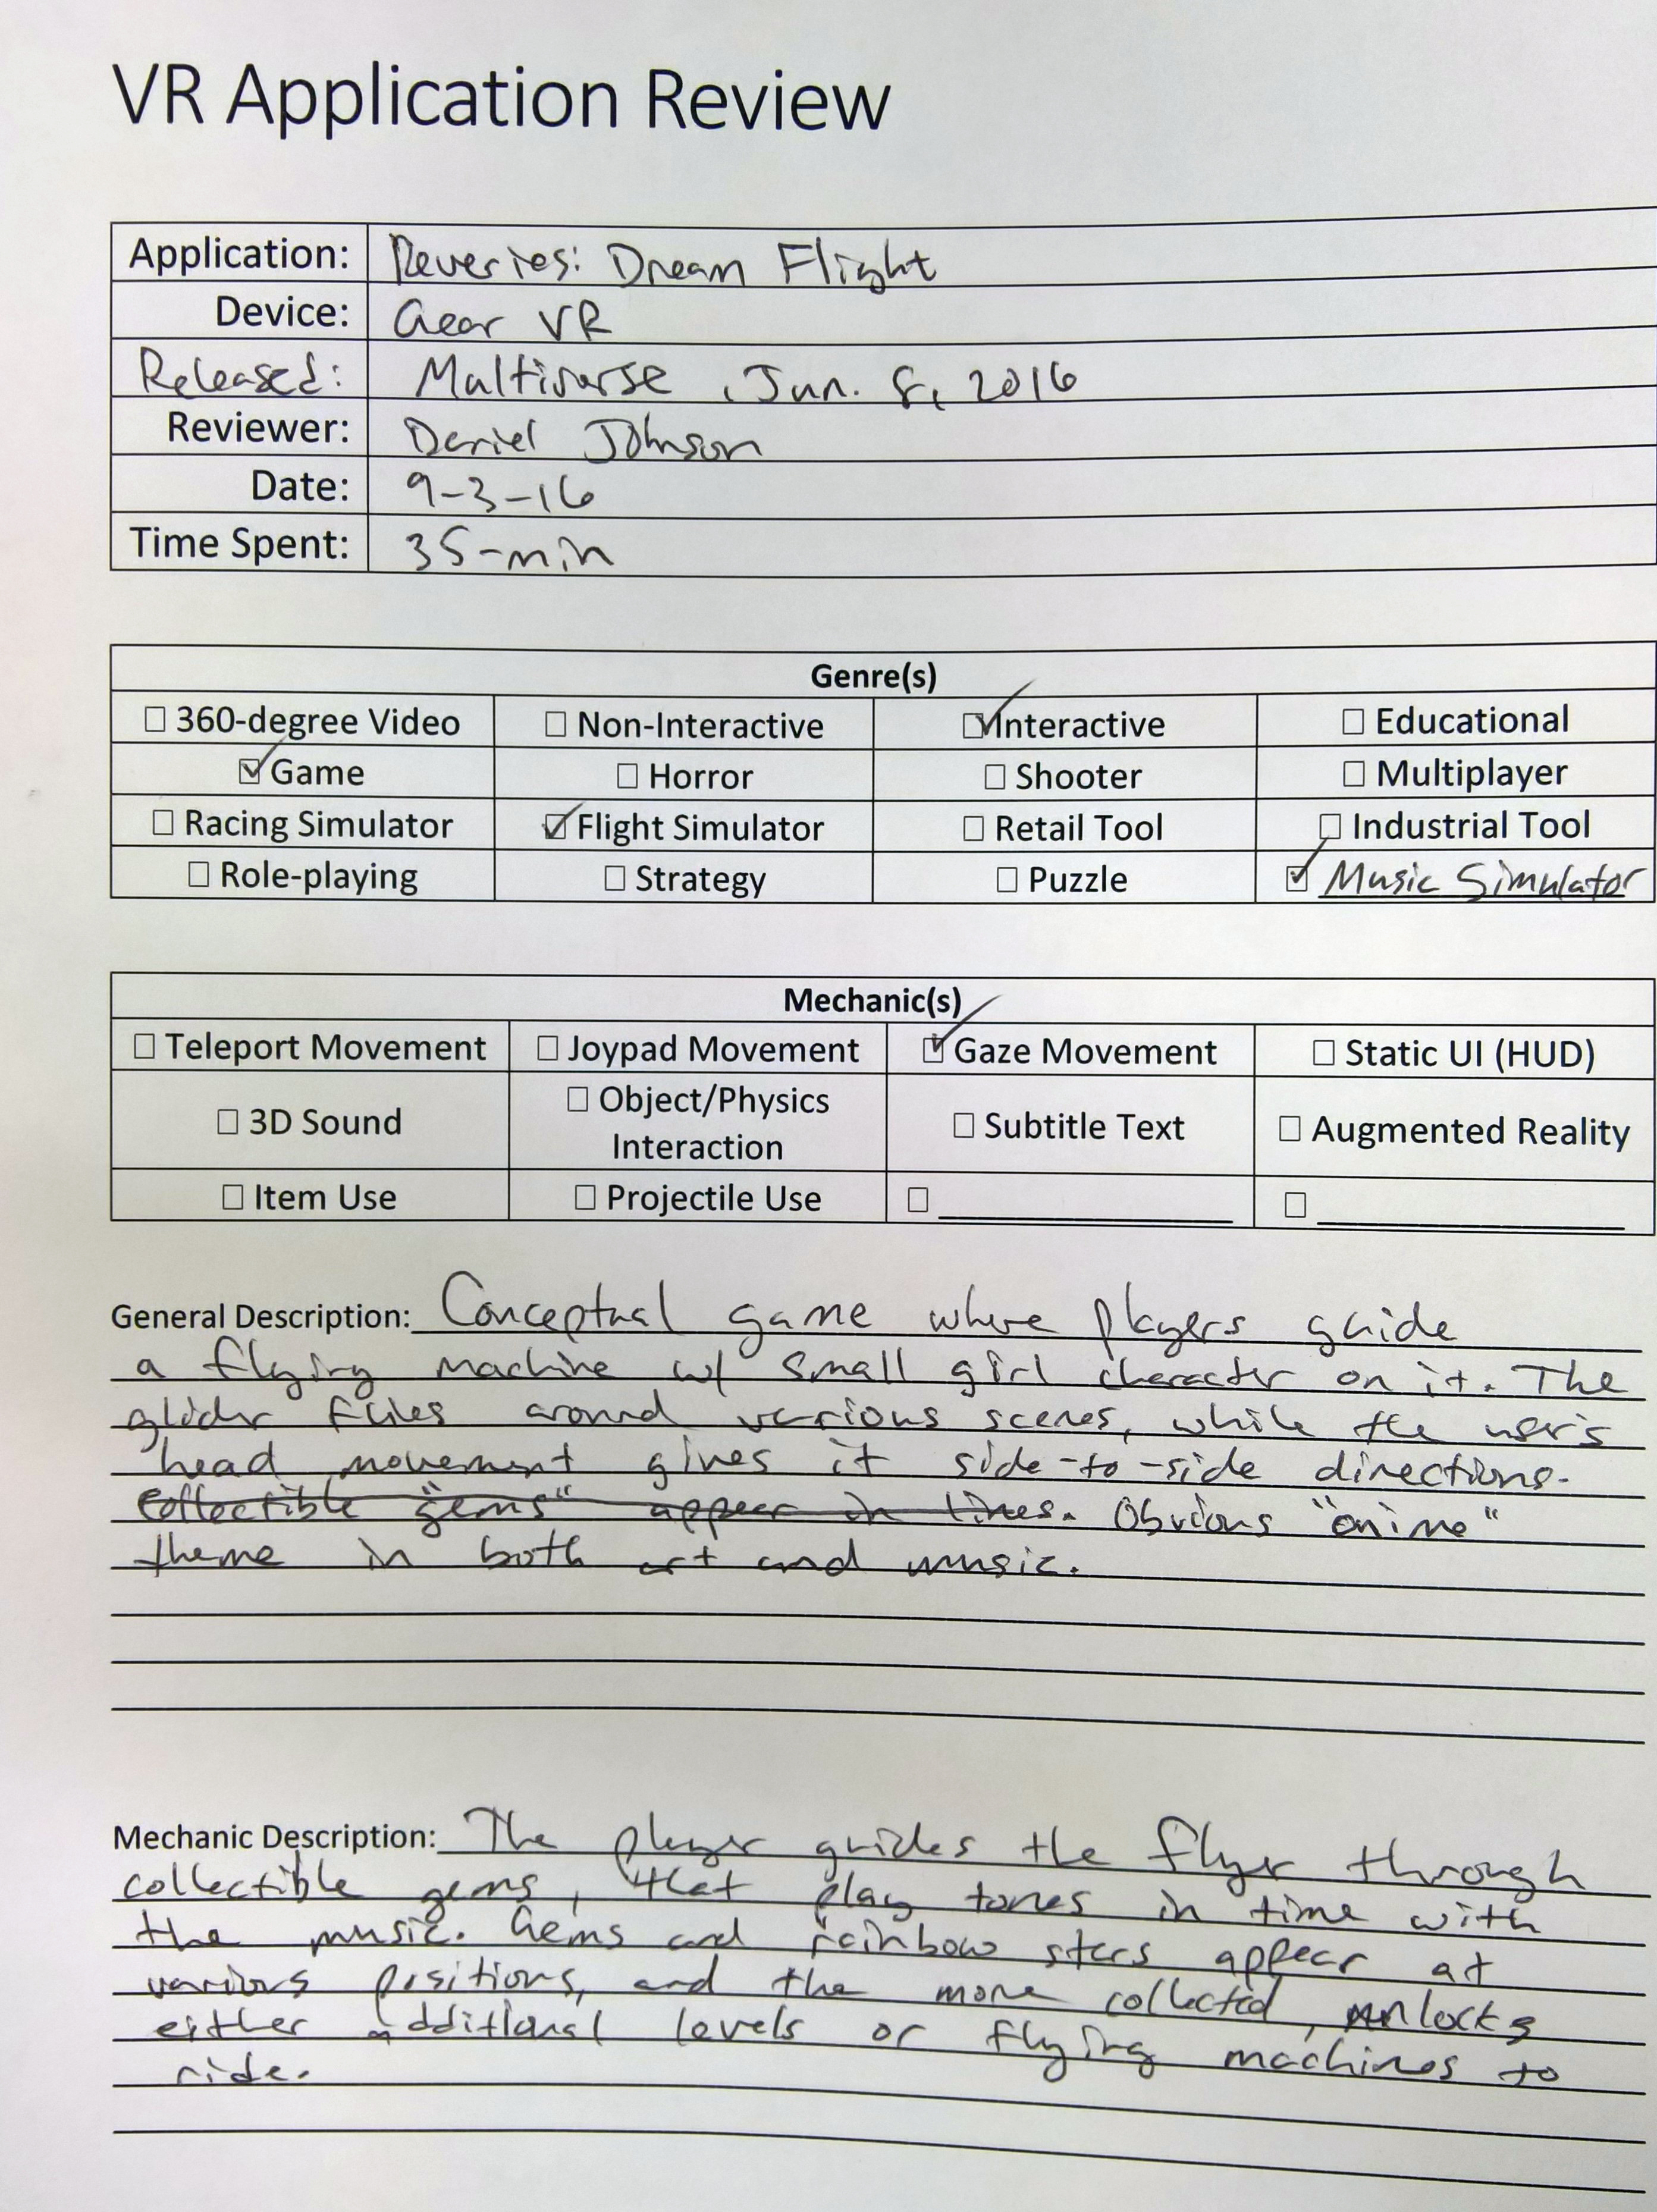 VR Application Review
Application: Reveries: Dream Flight
Device: Gear VR
Released: Multiverse, Jun. 8, 2016
Reviewer: Daniel Johnson
Date: 9-3-16
Time Spent: 35-min
Genre(s)
☐ 360-degree Video ☐ Non-Interactive ☑ Interactive ☐ Educational
☑ Game ☐ Horror ☐ Shooter ☐ Multiplayer
☐ Racing Simulator ☑ Flight Simulator ☐ Retail Tool ☐ Industrial Tool
☐ Role-playing ☐ Strategy ☐ Puzzle ☑ Music Simulator
Mechanic(s)
☐ Teleport Movement ☐ Joypad Movement ☑ Gaze Movement ☐ Static UI (HUD)
☐ 3D Sound ☐ Object/Physics Interaction ☐ Subtitle Text ☐ Augmented Reality
☐ Item Use ☐ Projectile Use ☐ ☐
General Description: Conceptual game where players guide
a flying machine w/ small girl character on it. The
glider flies around various scenes, while the user's
head movement gives it side-to-side directions.
Collectible "gems" appear in lines. Obvious "anime"
theme in both art and music.
Mechanic Description: The player guides the flyer through
collectible gems, that play tones in time with
the music. Gems and rainbow stars appear at
various positions, and the more collected, unlocks
either additional levels or flying machines to
ride.